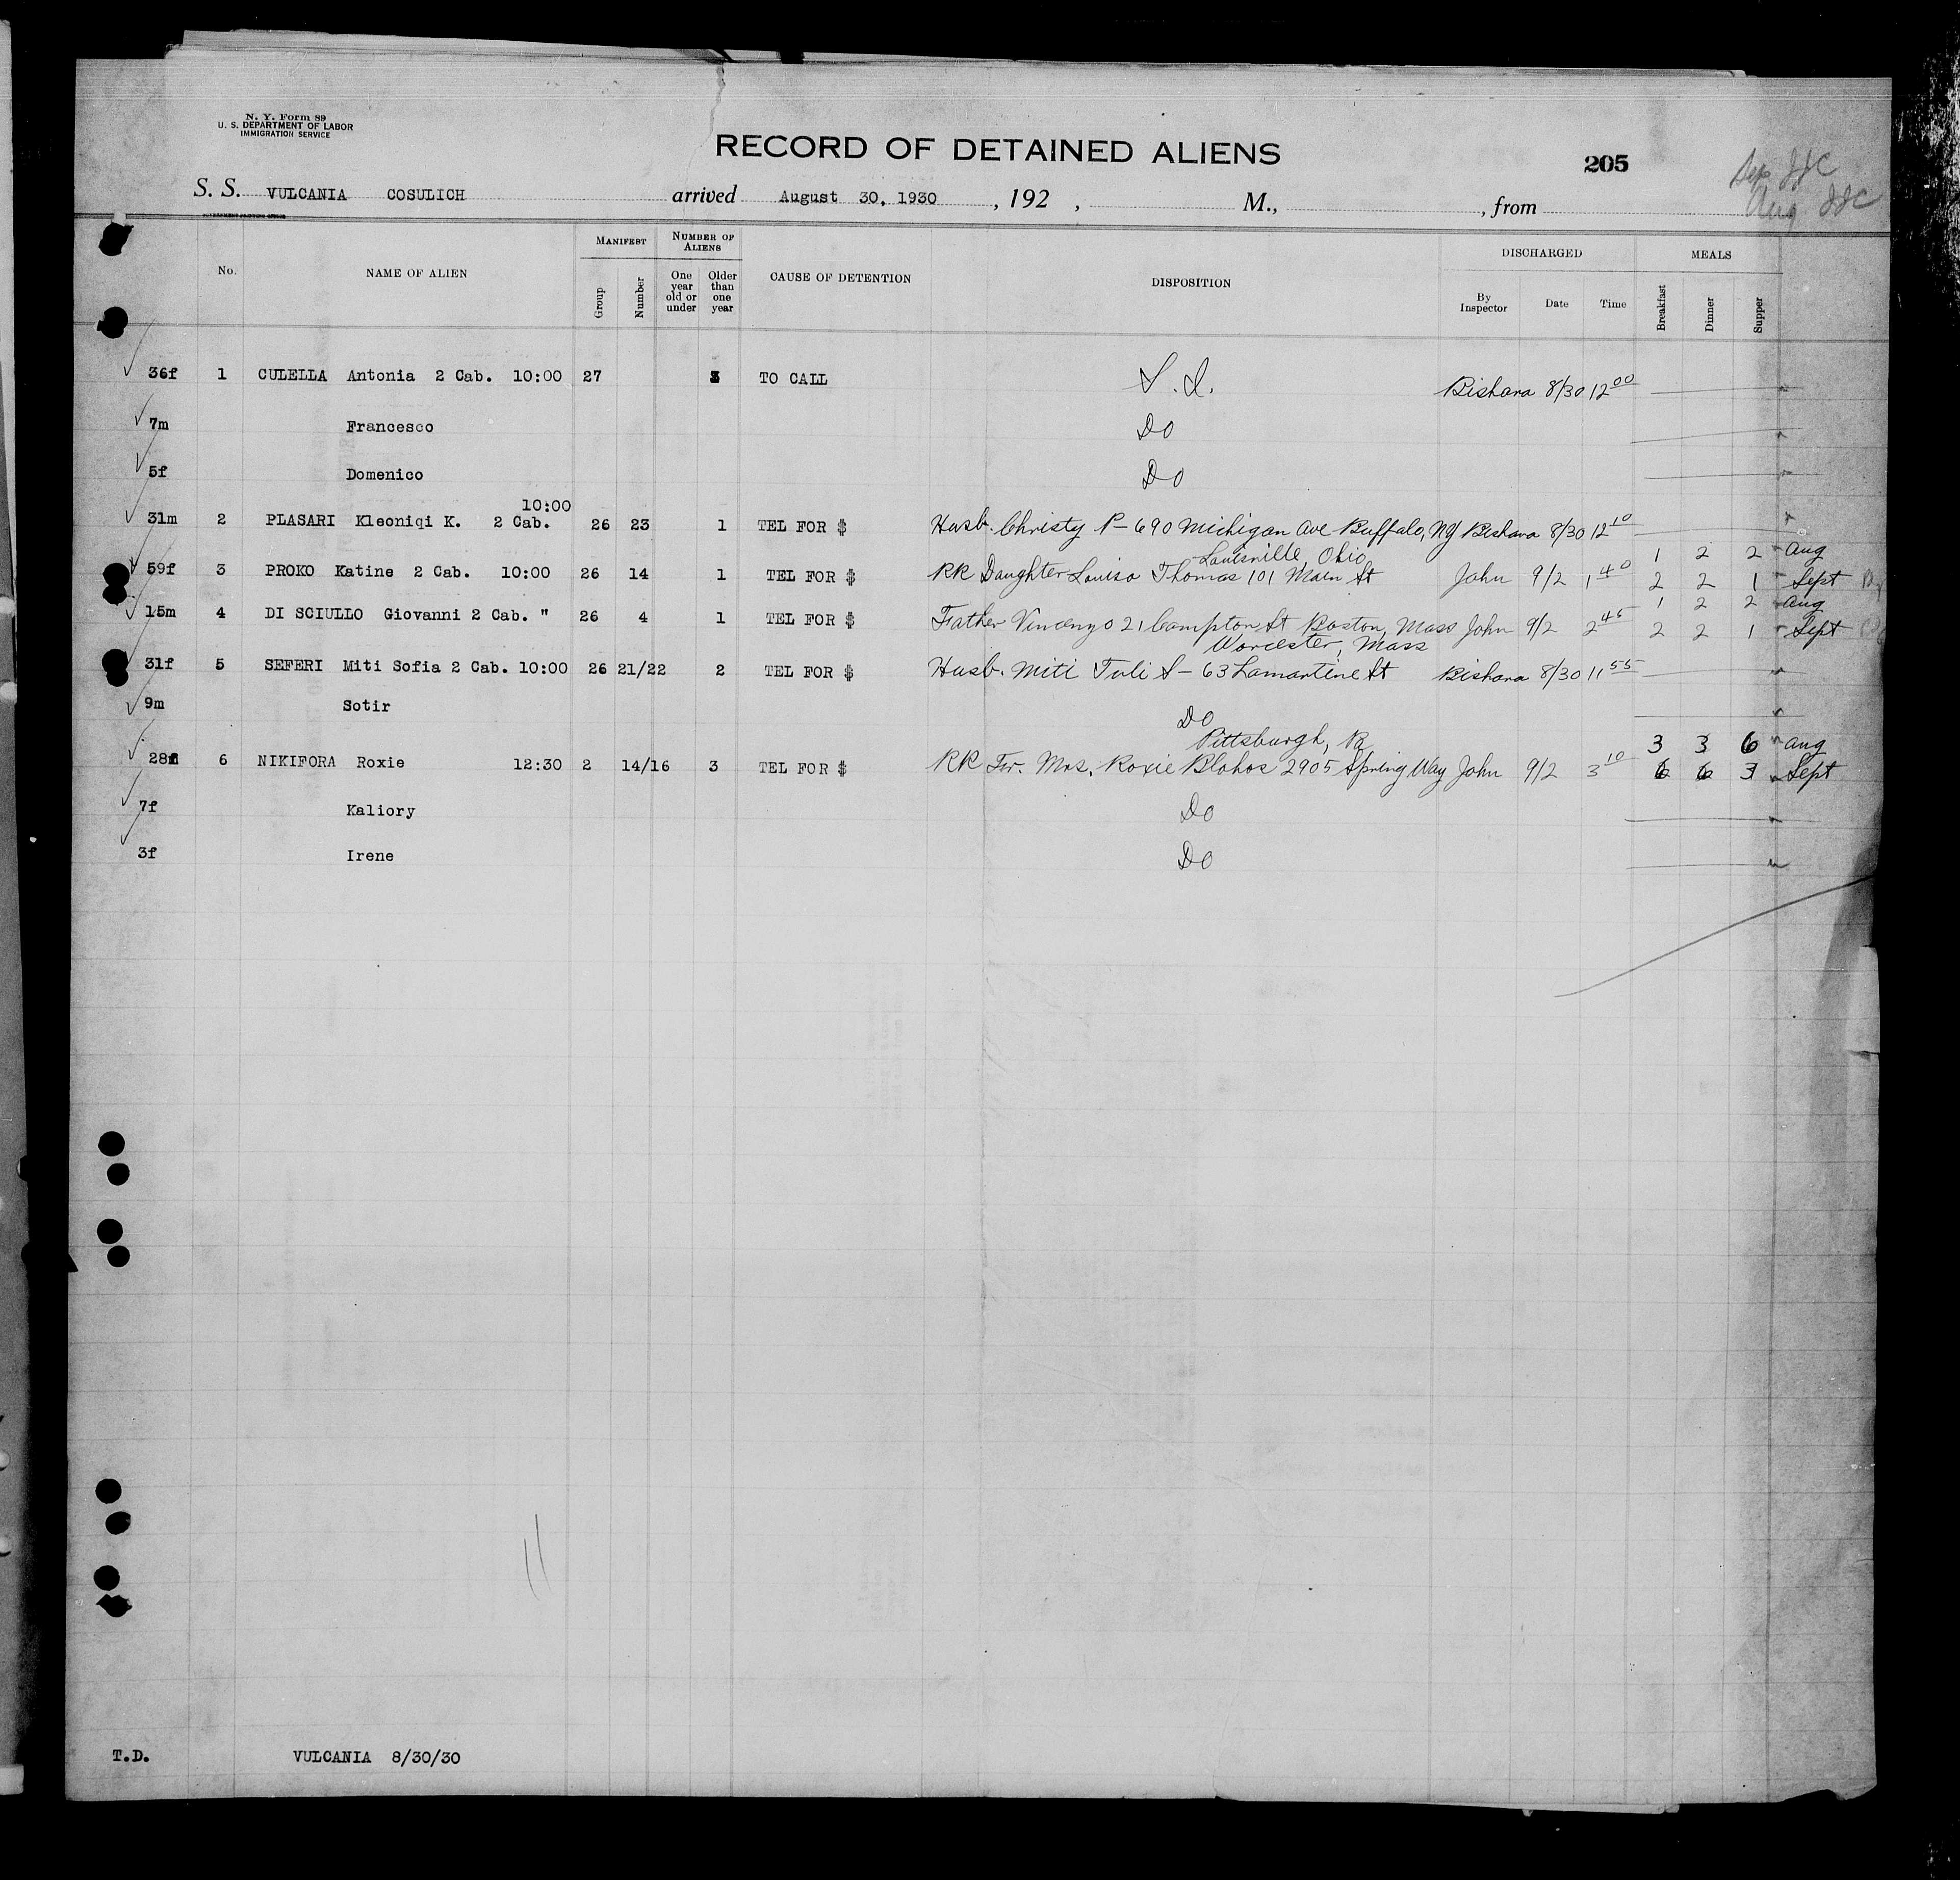 N. Y. Form 89
U. S. DEPARTMENT OF LABOR
IMMIGRATION SERVICE
RECORD OF DETAINED ALIENS
205
S. S. VULCANIA COSULICH arrived August 30, 1930, 192 , M., , from
Sep
Aug
GOVERNMENT PRINTING OFFICE
No. NAME OF ALIEN MANIFEST Group Number NUMBER OF ALIENS One year old or under Older than one year CAUSE OF DETENTION DISPOSITION DISCHARGED By Inspector Date Time MEALS Breakfast Dinner Supper
36f 1 CULELLA Antonia 2 Cab. 10:00 27 3 TO CALL S.I. Bishara 8/30 12 00
7m Francesco Do
5f Domenico Do
10:00
31m 2 PLASARI Kleoniqi K. 2 Cab. 26 23 1 TEL FOR $ Husb. Christy P- 690 Michigan Ave Buffalo, NY Bishara 8/30 12 10
Louisville, Ohio 1 2 2 Aug
59f 3 PROKO Katine 2 Cab. 10:00 26 14 1 TEL FOR $ RR Daughter Louisa Thomas 101 Main St John 9/2 1 40 2 2 1 Sept
1 2 2 Aug
15m 4 DI SCIULLO Giovanni 2 Cab. " 26 4 1 TEL FOR $ Father Vincenzo 21 Compton St Boston, Mass John 9/2 2 45 2 2 1 Sept
Worcester, Mass
31f 5 SEFERI Miti Sofia 2 Cab. 10:00 26 21/22 2 TEL FOR $ Husb. Miti Tuli S- 63 Lamartine St Bishara 8/30 11 55
9m Sotir Do
Pittsburgh, Pa 3 3 6 Aug
28f 6 NIKIFORA Roxie 12:30 2 14/16 3 TEL FOR $ RR Fr. Mrs. Roxie Blahos 2905 Spring Way John 9/2 3 10 6 6 3 Sept
7f Kaliory Do
3f Irene Do
T.D. VULCANIA 8/30/30